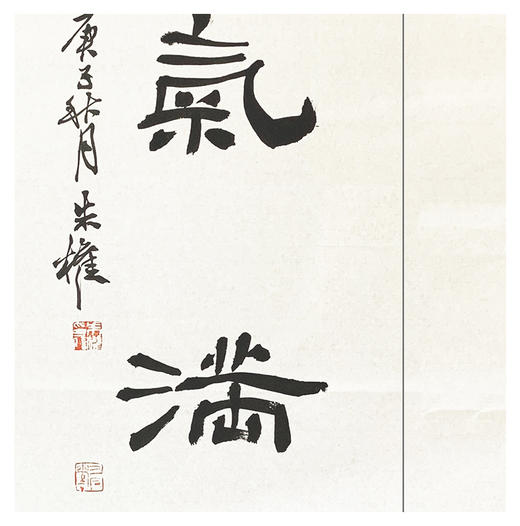 氣
滿
庚子秋月
朱權